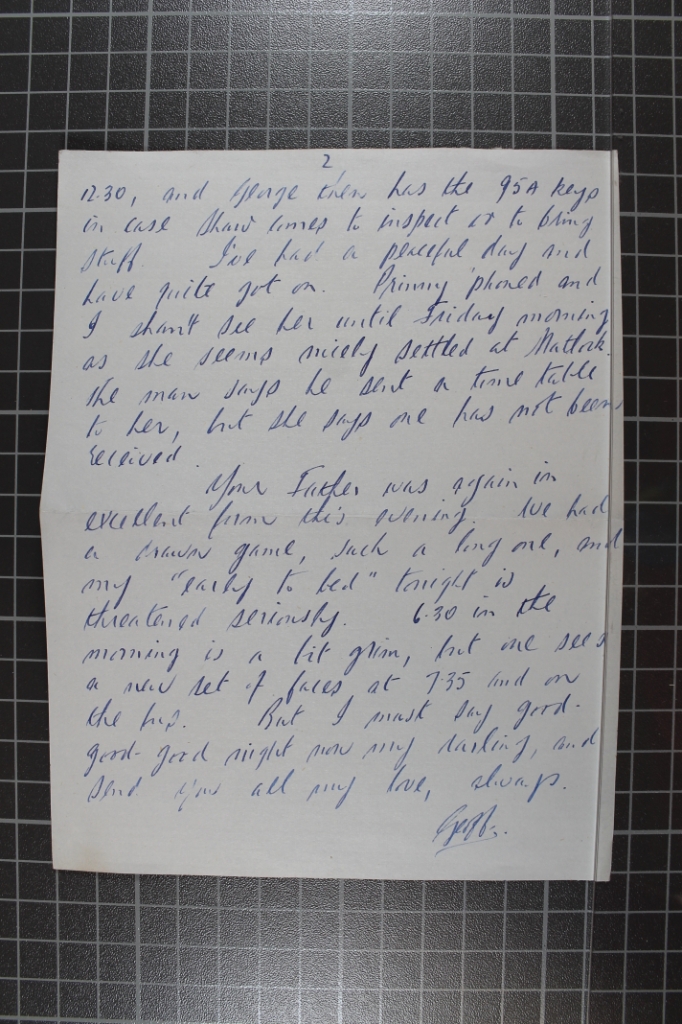 2
12.30, and George then has the 95A keys
in case Shaw comes to inspect or to bring
stuff. I've had a peaceful day and
have quite got on. Prinny 'phoned and
I shan't see her until Friday morning
as she seems nicely settled at Matlock.
The man says he sent a time table
to her, but she says one has not been
received.
Your Father was again in
excellent form this evening. We had
a drawn game, such a long one, and
my "early to bed" tonight is
threatened seriously. 6.30 in the
morning is a bit grim, but one sees
a new set of faces at 7.35 and on
the bus. But I must say good-
good-good night now my darling, and
send you all my love, always.
Geoff.